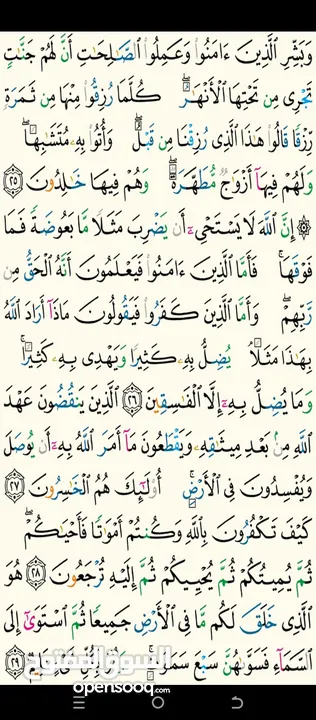 وَبَشِّرِ ٱلَّذِينَ ءَامَنُوا۟ وَعَمِلُوا۟ ٱلصَّـٰلِحَـٰتِ أَنَّ لَهُمْ جَنَّـٰتٍ
تَجْرِى مِن تَحْتِهَا ٱلْأَنْهَـٰرُ ۖ كُلَّمَا رُزِقُوا۟ مِنْهَا مِن ثَمَرَةٍ
رِّزْقًا قَالُوا۟ هَـٰذَا ٱلَّذِى رُزِقْنَا مِن قَبْلُ ۖ وَأُتُوا۟ بِهِۦ مُتَشَـٰبِهًا ۖ
وَلَهُمْ فِيهَآ أَزْوَٰجٌ مُّطَهَّرَةٌ ۖ وَهُمْ فِيهَا خَـٰلِدُونَ ٢٥
۞ إِنَّ ٱللَّهَ لَا يَسْتَحْىِۦٓ أَن يَضْرِبَ مَثَلًا مَّا بَعُوضَةً فَمَا
فَوْقَهَا ۚ فَأَمَّا ٱلَّذِينَ ءَامَنُوا۟ فَيَعْلَمُونَ أَنَّهُ ٱلْحَقُّ مِن
رَّبِّهِمْ ۖ وَأَمَّا ٱلَّذِينَ كَفَرُوا۟ فَيَقُولُونَ مَاذَآ أَرَادَ ٱللَّهُ
بِهَـٰذَا مَثَلًا ۘ يُضِلُّ بِهِۦ كَثِيرًا وَيَهْدِى بِهِۦ كَثِيرًا ۚ
وَمَا يُضِلُّ بِهِۦٓ إِلَّا ٱلْفَـٰسِقِينَ ٢٦ ٱلَّذِينَ يَنقُضُونَ عَهْدَ
ٱللَّهِ مِنۢ بَعْدِ مِيثَـٰقِهِۦ وَيَقْطَعُونَ مَآ أَمَرَ ٱللَّهُ بِهِۦٓ أَن يُوصَلَ
وَيُفْسِدُونَ فِى ٱلْأَرْضِ ۚ أُو۟لَـٰٓئِكَ هُمُ ٱلْخَـٰسِرُونَ ٢٧
كَيْفَ تَكْفُرُونَ بِٱللَّهِ وَكُنتُمْ أَمْوَٰتًا فَأَحْيَـٰكُمْ ۖ
ثُمَّ يُمِيتُكُمْ ثُمَّ يُحْيِيكُمْ ثُمَّ إِلَيْهِ تُرْجَعُونَ ٢٨ هُوَ
ٱلَّذِى خَلَقَ لَكُم مَّا فِى ٱلْأَرْضِ جَمِيعًا ثُمَّ ٱسْتَوَىٰٓ إِلَى
ٱلسَّمَآءِ فَسَوَّىٰهُنَّ سَبْعَ سَمَـٰوَٰتٍ ۚ وَهُوَ بِكُلِّ شَىْءٍ عَلِيمٌ ٢٩
السوق المفتوح
opensooq.com